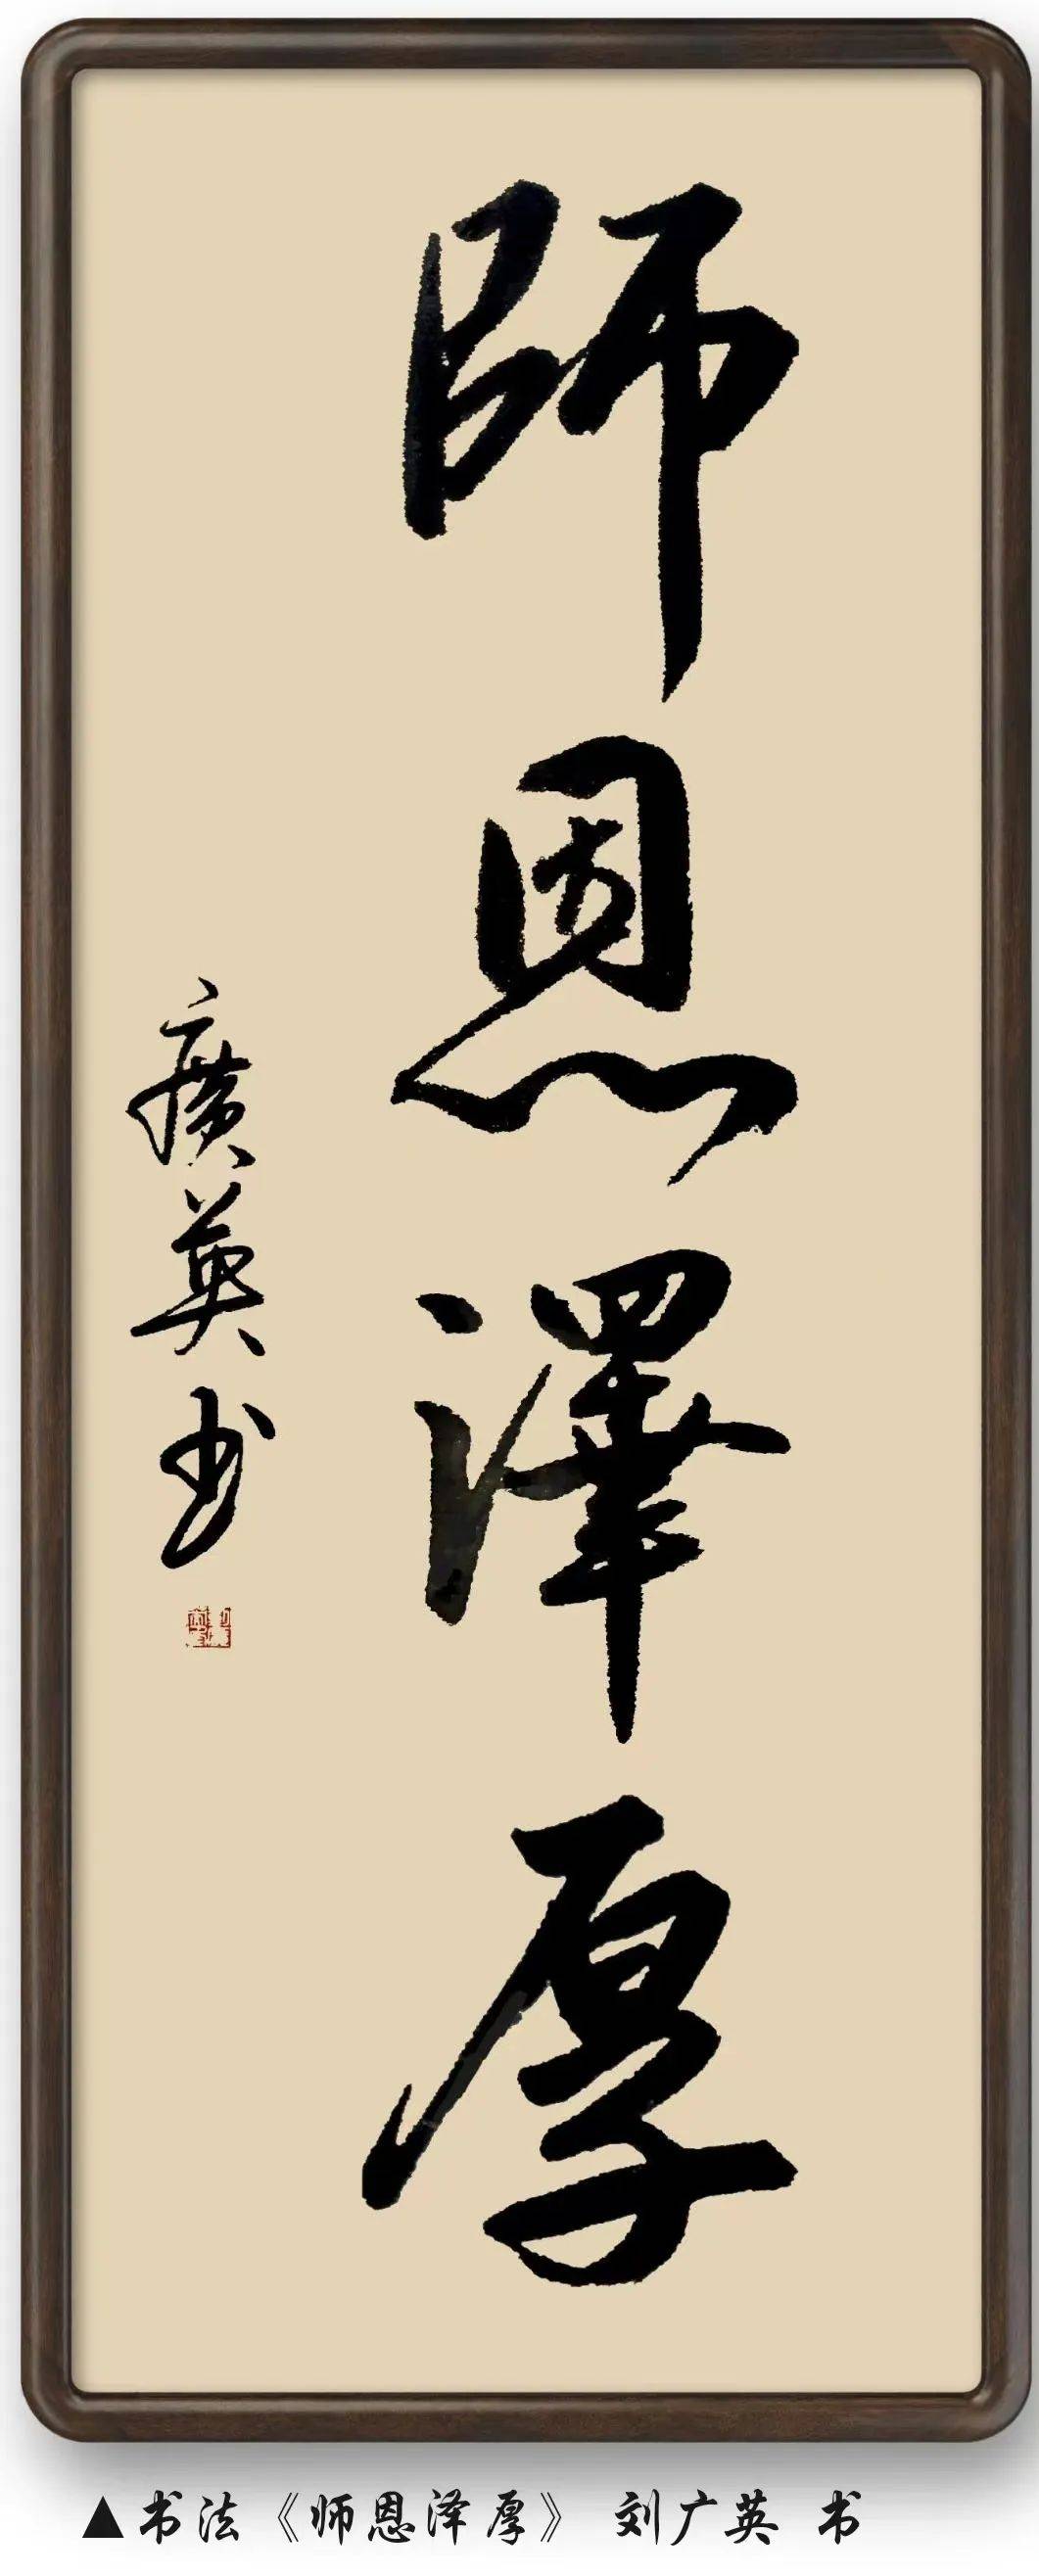 師恩澤厚
廣英书
▲书法《师恩泽厚》 刘广英 书